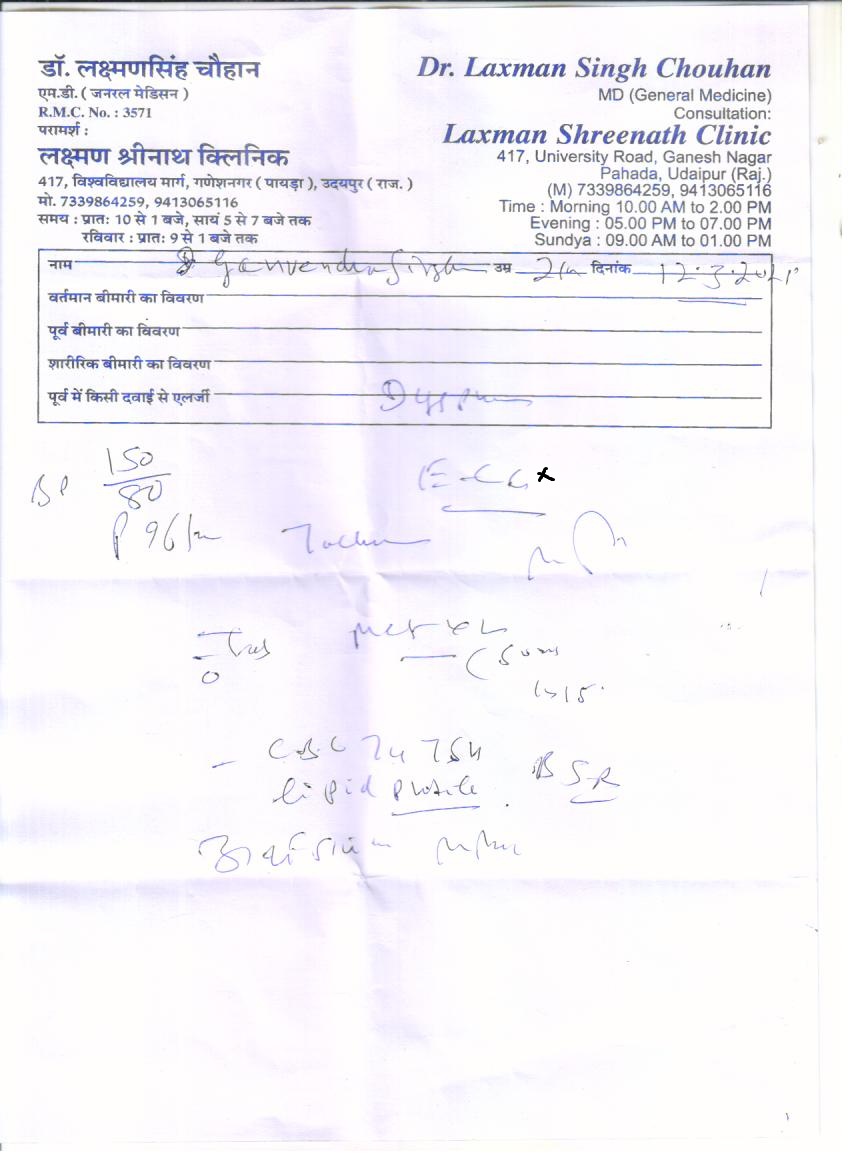 डॉ. लक्ष्मणसिंह चौहान
एम.डी. ( जनरल मेडिसन )
R.M.C. No. : 3571
परामर्श :
लक्ष्मण श्रीनाथ क्लिनिक
417, विश्वविद्यालय मार्ग, गणेशनगर ( पायड़ा ), उदयपुर ( राज. )
मो. 7339864259, 9413065116
समय : प्रातः 10 से 1 बजे, सायं 5 से 7 बजे तक
रविवार : प्रातः 9 से 1 बजे तक
Dr. Laxman Singh Chouhan
MD (General Medicine)
Consultation:
Laxman Shreenath Clinic
417, University Road, Ganesh Nagar
Pahada, Udaipur (Raj.)
(M) 7339864259, 9413065116
Time : Morning 10.00 AM to 2.00 PM
Evening : 05.00 PM to 07.00 PM
Sundya : 09.00 AM to 01.00 PM
नाम उम्र दिनांक 12.3.2021
वर्तमान बीमारी का विवरण
पूर्व बीमारी का विवरण
शारीरिक बीमारी का विवरण
पूर्व में किसी दवाई से एलर्जी
BP 150/80
ECG
P 96/m
Met XL
(50 mg
CBC TSH
lipid profile . BSR